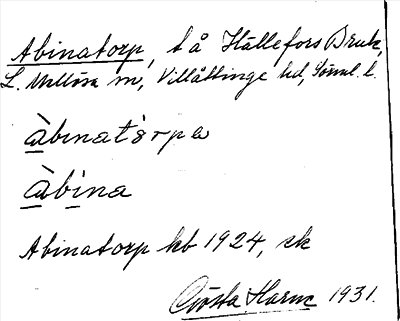 Abinatorp, t å Hällefors Bruk,
L. Mellösa sn, Villåttinge hd, Söml. l.
àbinatòrpa
àbina
Abinatorp kb 1924, sk
Gösta Harne 1931.